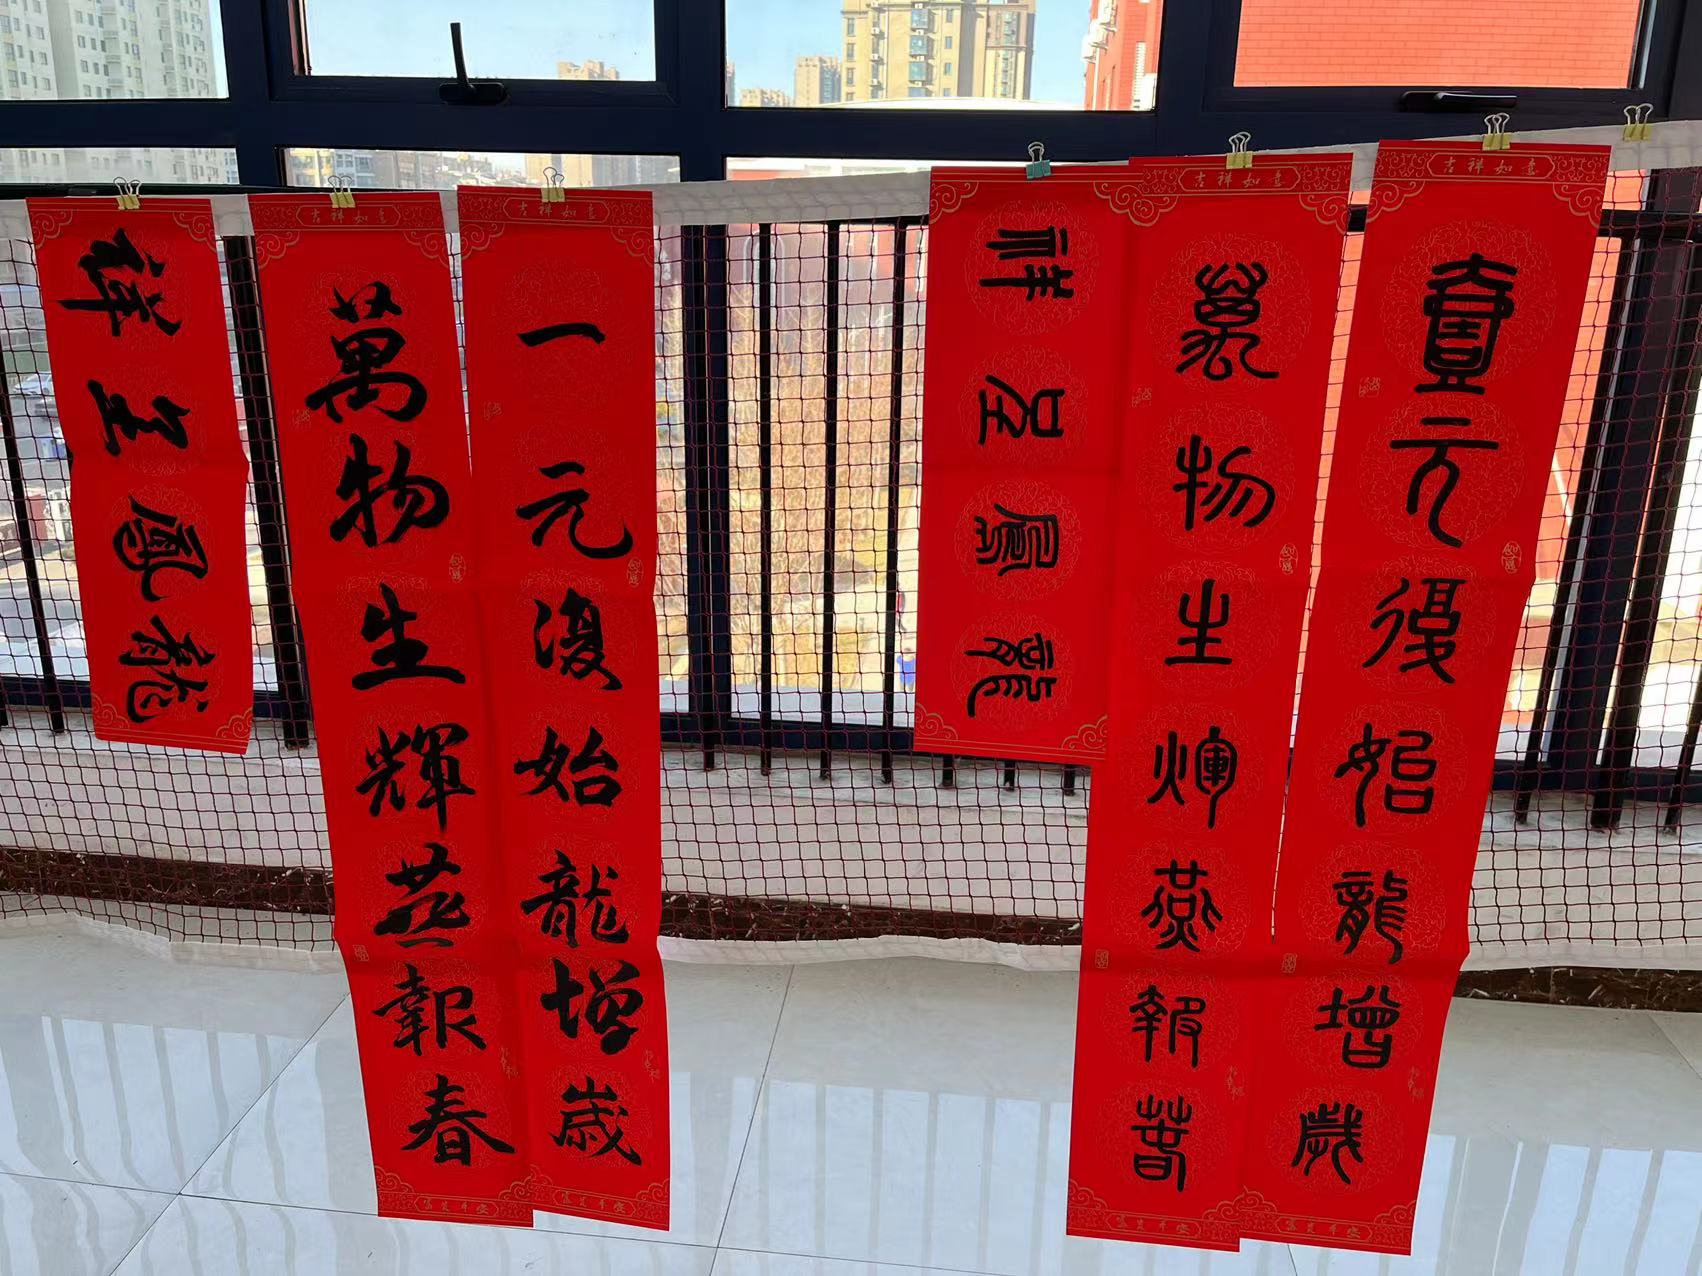 吉祥如意
壹元復始龍增歲
吉祥如意
萬物生煇燕報春
龍鳳呈祥
吉祥如意
一元復始龍增歲
吉祥如意
萬物生輝燕報春
龍鳳呈祥